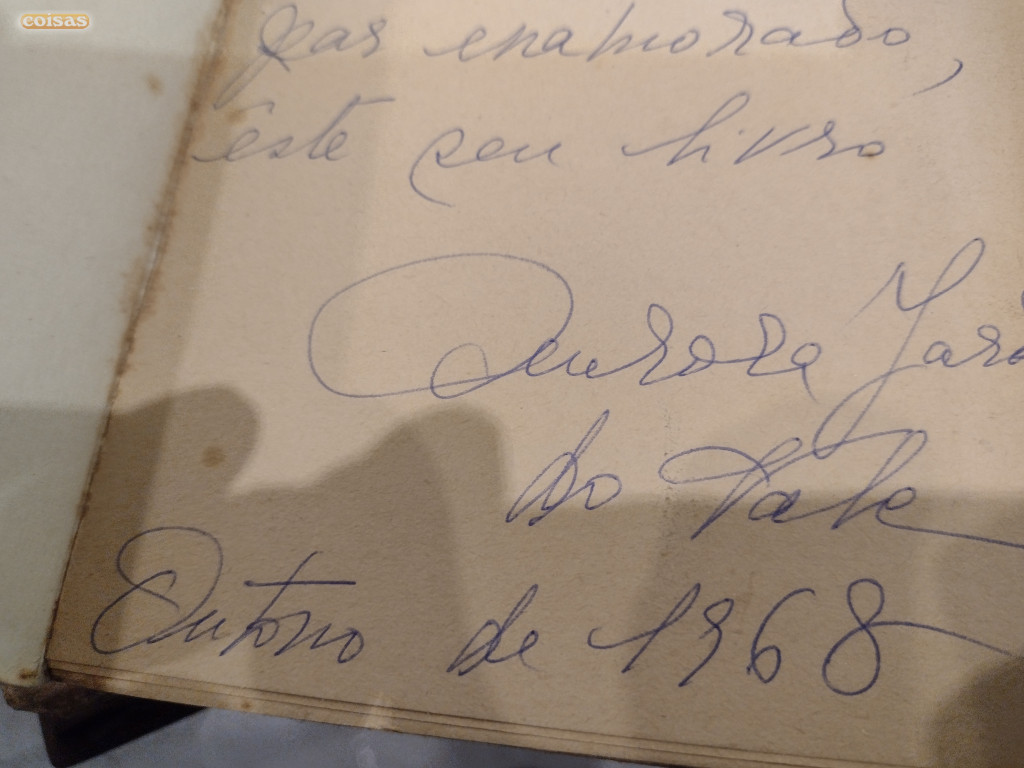 coisas
par enamorado,
êste seu livro
Aurora Jard
do Vale
Outono de 1968